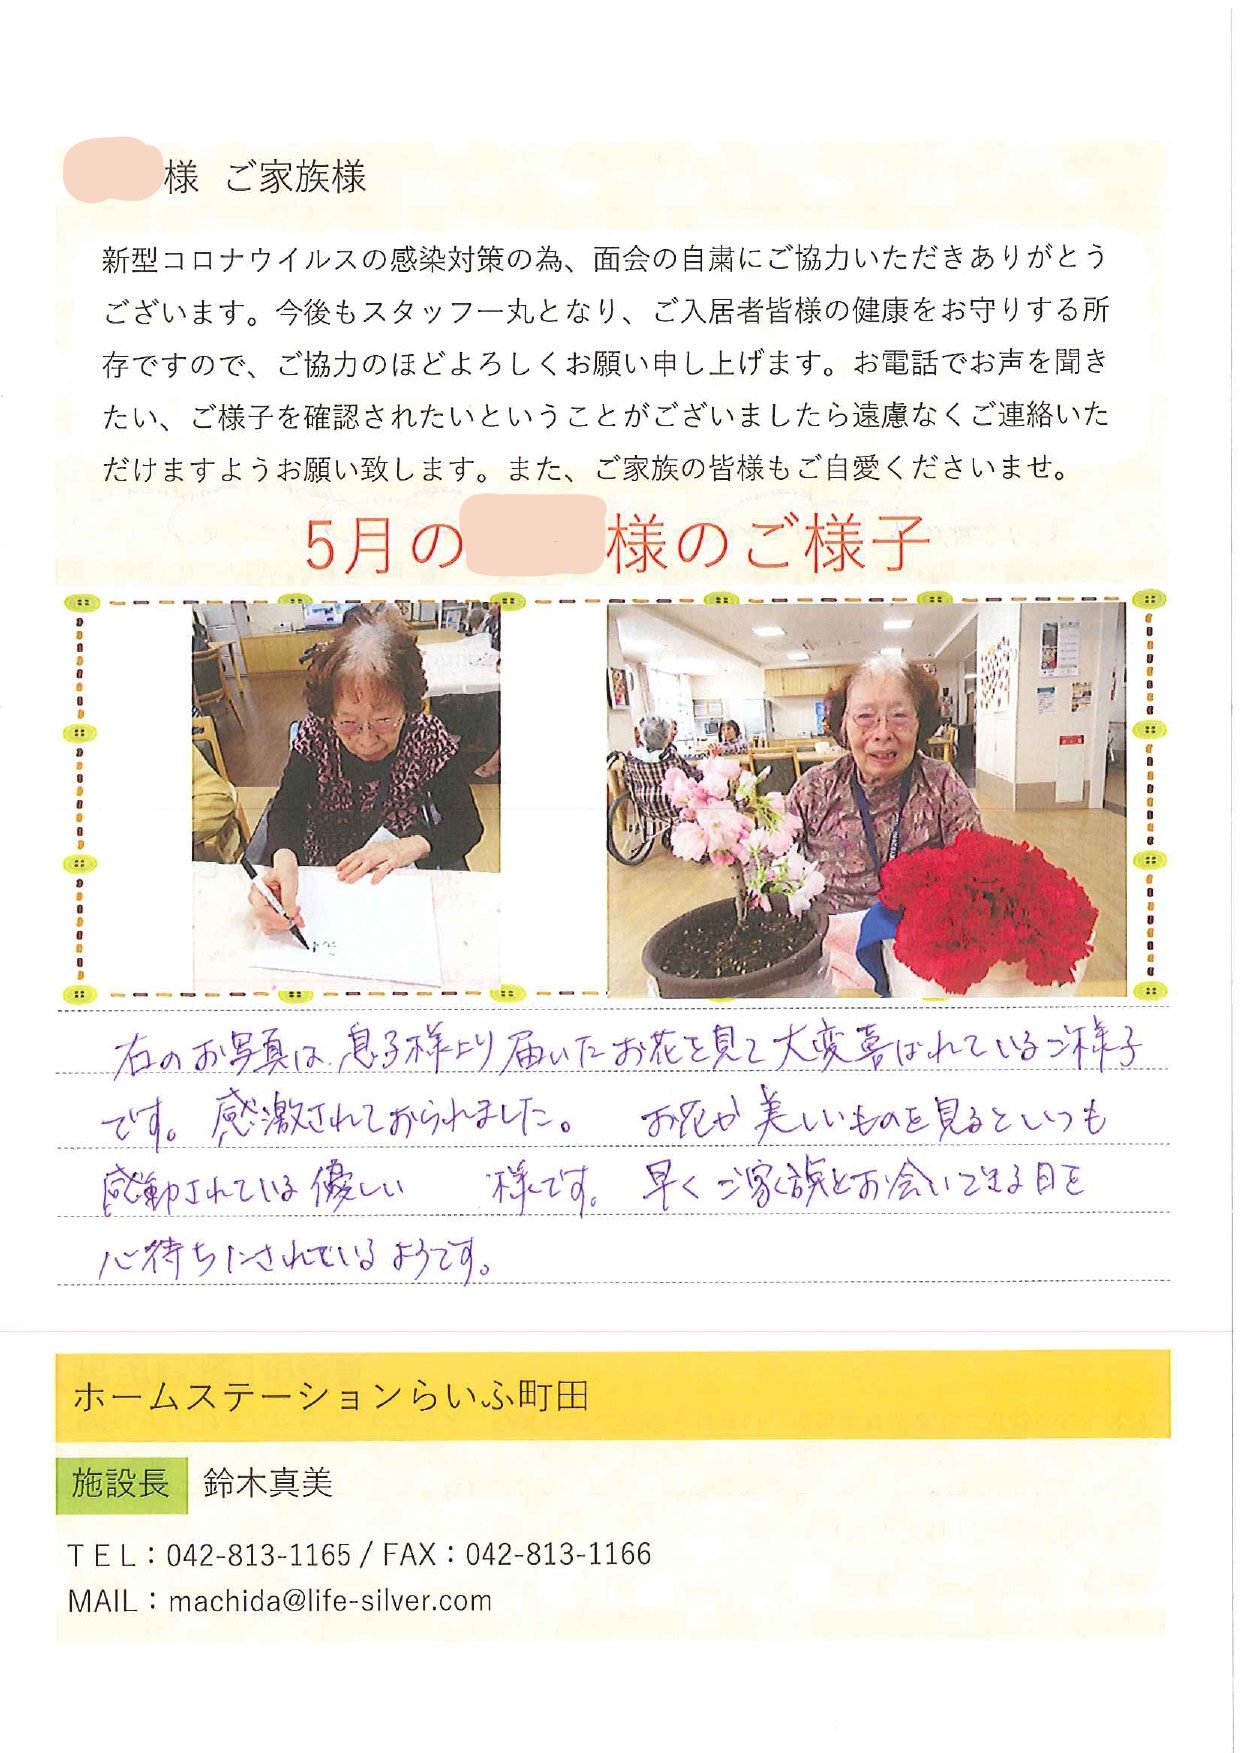 様 ご家族様
新型コロナウイルスの感染対策の為、面会の自粛にご協力いただきありがとう
ございます。今後もスタッフ一丸となり、ご入居者皆様の健康をお守りする所
存ですので、ご協力のほどよろしくお願い申し上げます。お電話でお声を聞き
たい、ご様子を確認されたいということがございましたら遠慮なくご連絡いた
だけますようお願い致します。また、ご家族の皆様もご自愛くださいませ。
5月の 様のご様子
右のお写真は、息子様より届いたお花を見て大変喜ばれているご様子
です。感激されておられました。 お花や美しいものを見るといつも
感動されている優しい 様です。早くご家族とお会いできる日を
心待ちにされているようです。
ホームステーションらいふ町田
施設長 鈴木真美
TEL：042-813-1165 / FAX：042-813-1166
MAIL：machida@life-silver.com